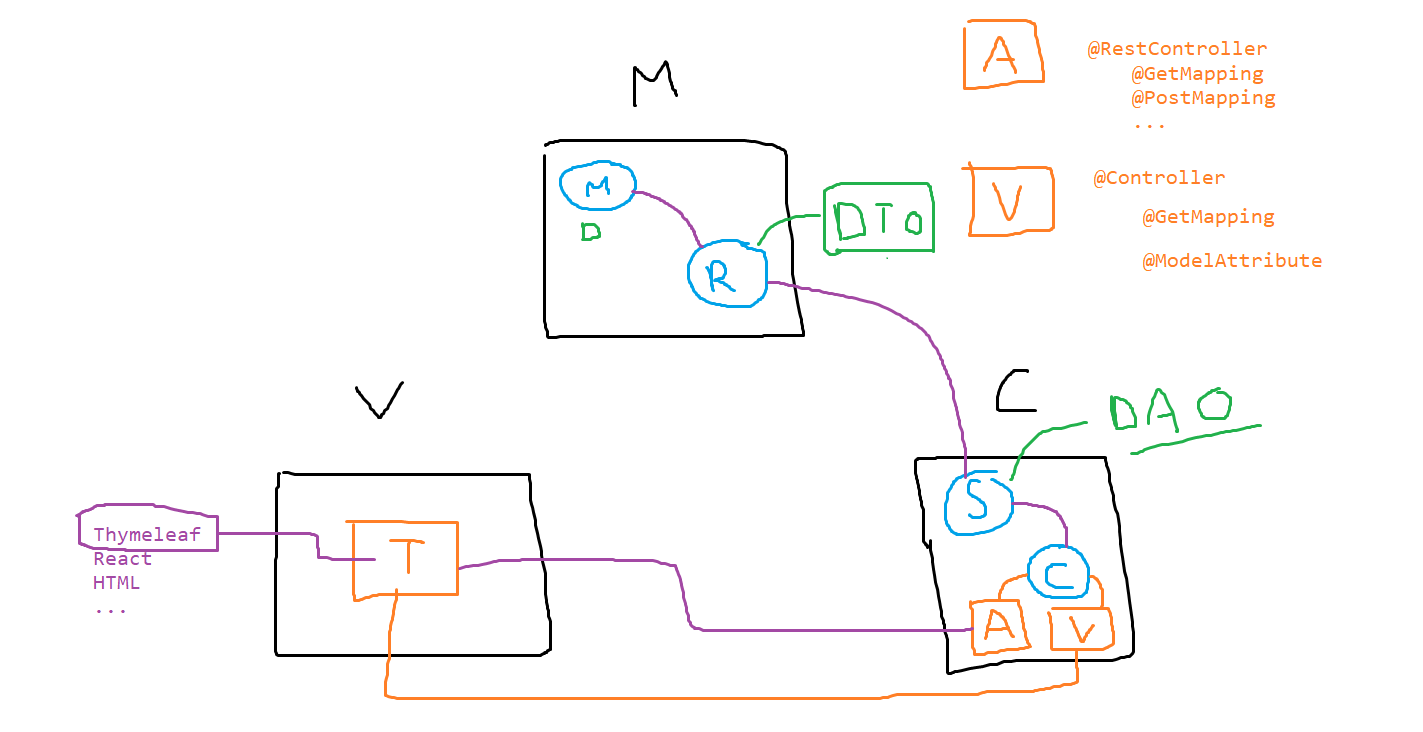 M
A
@RestController
@GetMapping
@PostMapping
...
M
D
R
DTO
V
@Controller
@GetMapping
@ModelAttribute
V
C
DAO
Thymeleaf
React
HTML
...
T
S
C
A
V